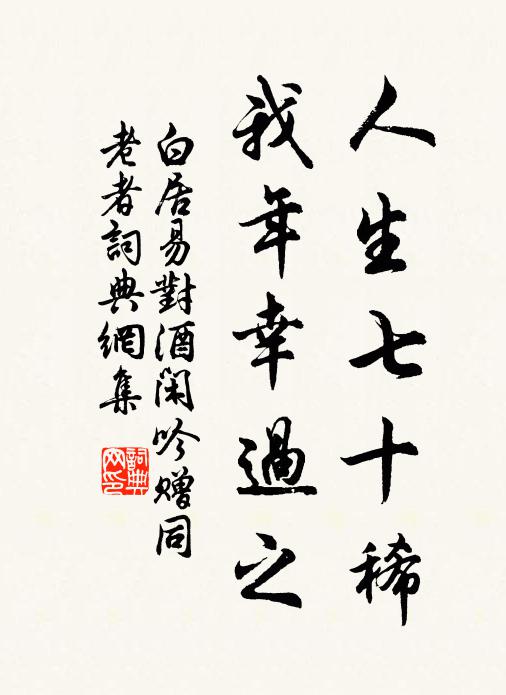 人生七十稀
我年幸過之
白居易對酒閑吟贈同
老者詞典網集
詞典
网印